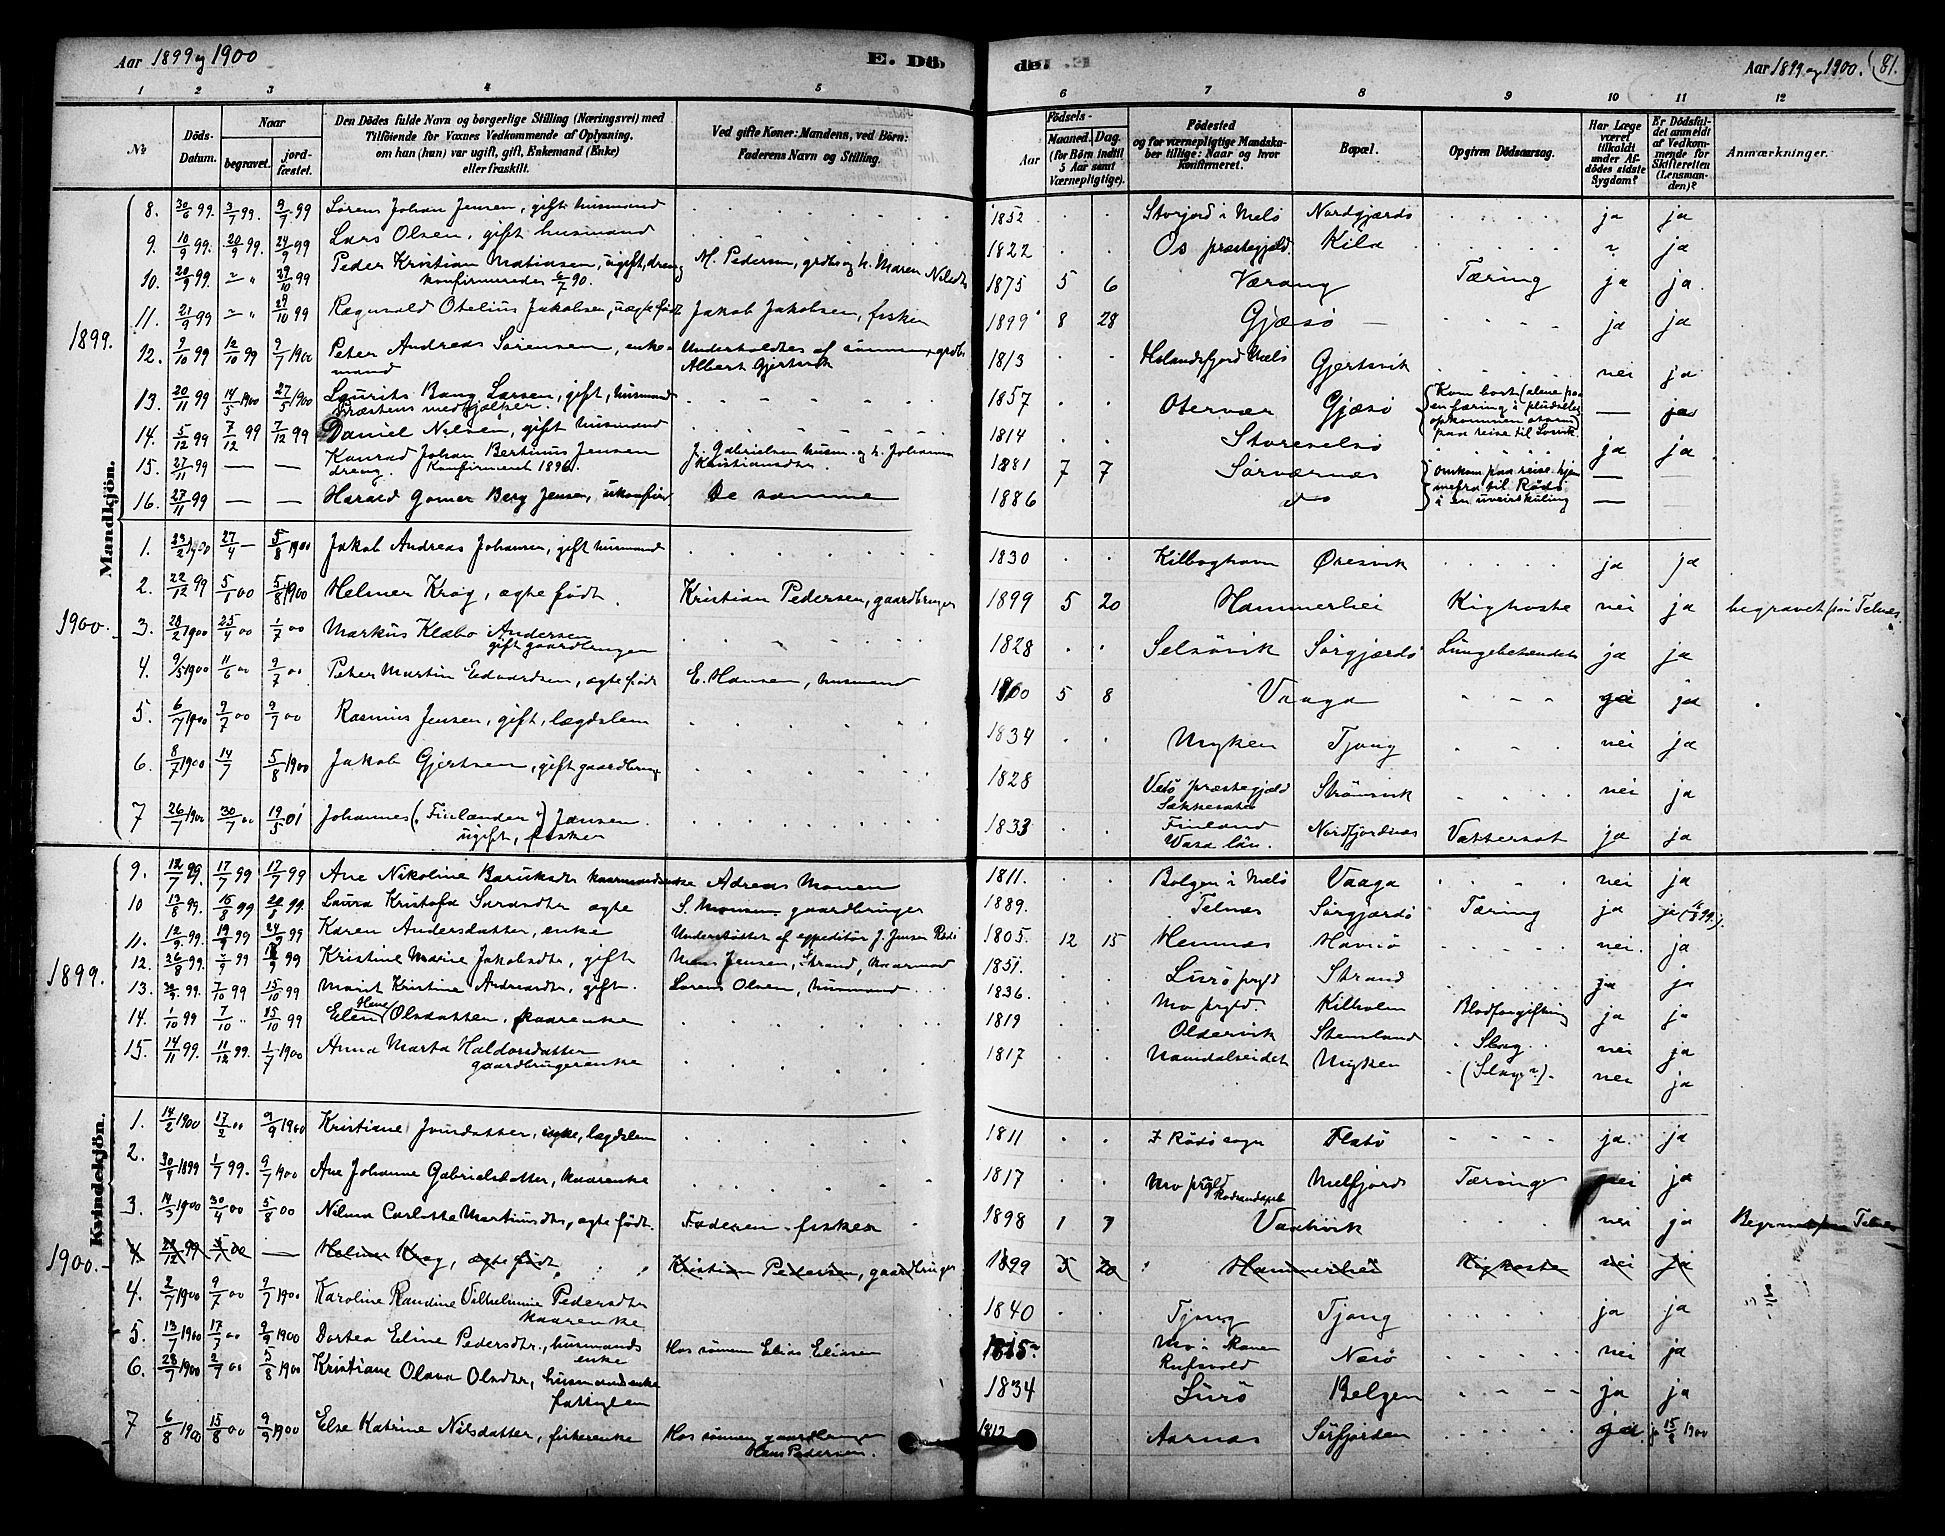 Aar 1899 og 1900
E. Dö
de
Aar 1899 og 1900. 81.
1 2 3 4 5 6 7 8 9 10 11 12
No
Döds-Datum.
Naar
begravet.
jord-fæstet.
Den Dödes fulde Navn og borgerlige Stilling (Næringsvei) med
Tilföiende for Voxnes Vedkommende af Oplysning,
om han (hun) var ugift, gift, Enkemand (Enke)
eller fraskilt.
Ved gifte Koner: Mandens, ved Börn:
Faderens Navn og Stilling.
Födsels-
Aar
Maaned. Dag.
(for Börn indtil 5 Aar samt Værnepligtige).
Födested
og for værnepligtige Mandska-
ber tillige: Naar og hvor
konfirmeret.
Bopæl.
Opgiven Dödsaarsag.
Har Læge været tilkaldt under Af-dödes sidste Sygdom?
Er Dödsfal-det anmeldt af Vedkom-mende for Skifteretten (Lensman-den)?
Anmærkninger.
Mandkjön.
1899.
8. 30/6 99. 3/7 99. 9/7 99 Sörens Johan Jensen, gift husmand 1852 Storjord i Melö Nordgjærdö ja ja
9. 10/9 99. 20/9 99. 24/9 99 Lars Olsen, gift husmand 1822 Os præstegjeld. Kila ja
10. 20/9 99. 29/10 99 Peder Kristian Matiasen, ugift, dreng
konfirmeredes 90. M. Pedersen, grdbr og h. Maren Nilsdtr 1875 5 6 Værang Tæring ja ja
11. 21/9 99 29/10 99 Ragnvald Otelius Jakobsen, uægte födt Jakob Jakobsen, fisker 1899 8 28 Gjæsö ja ja
12. 9/10 99 12/10 99 9/7 1900 Peter Andreas Sörensen, enke-
mand Underholdtes af sönnen, grdbr
Albert Gjertsvik 1813 Holandsfjord Melö Gjertsvik nei ja
13. 20/11 99 14/5 1900 27/5 1900 Laurits Bang Larsen, gift, husmand
Præstens medhjælper. 1857 Otervær Gjæsö Kom bort (alene paa
en færing i pludselig
opkommen storm)
paa reise til — ja
14. 5/12 99 7/12 99 7/12 99 Daniel Nilsen, gift husmand 1814 Storeselsö ja ja
15. 27/11 99 — — Konrad Johan Bertinus Jensen
dreng. Konfirmeret 1896. J. Gabrielsen husm. og h. Johanna
Kristiansdtr. 1881 7 7 Sörværnes omkom paa reise hjem-
mefra til Rödö
i en uveirskuling — —
16. 27/11 99 — — Harald Gomer Berg Jensen, ukonfirm. De samme 1886 do —
1900.
1. 23/2 1900 27/4 — 5/8 1900 Jakob Andreas Johansen, gift husmand 1830 Kilboghavn Öresvik ja ja
2. 22/12 99 5/1 00 5/8 1900 Helmer Krog, ægte födt. Kristian Pedersen, gaardbruger 1899 5 20 Hammerhei Kighoste nei ja begravet fra Telnes
3. 28/2 1900 25/4 00 1/7 00 Markus Klæbo Andersen
gift gaardbruger 1828 Selsövik Sörgjærdö Lungebetændelse ja ja
4. 9/5 1900 11/6 00 9/7 00 Peter Martin Edvardsen, ægte födt E. Hansen, husmand 1900 5 8 Vaaga ja ja
5. 6/7 1900 9/7 00 9/7 00 Rasmus Jensen, gift, lægdslem 1834 Myken Tjong nei ja
6. 8/7 1900 14/7 5/8 1900 Jakob Gjertsen, gift gaardbruger 1828 præstegjeld Strömsvik nei ja
7 26/7 1900 30/7 00 19/5 01 Johannes ("Finlænder") Jansen.
ugift, fisker 1833 Finland
Wasa län. Nordfjordnes Vattersot ja ja
Kvindekjön.
1899.
9. 12/7 99. 17/7 99 17/7 99 Ane Nikoline Baruksdtr kaarmandsenke Adreas Monen 1811. Bolgen i Melö Vaaga nei ja
10 13/8 99. 16/8 99 20/8 99. Laura Kristofa Sarasdtr ægte S. Monsen gaardbruger 1889. Telnæs Sörgjærdö Tæring ja
11. 12/9 99. 19/9 99 24/9 99 Karen Andersdatter, enke Understöttet af expeditör J. Jensen Rödö 1805. 12 15 Hemnæs Havnö nei. ja
12. 26/8 99. 99 99 Kristine Marie Jakobsdtr, gift Mons Jensen, Strand, kaarmand 1851. Lurö prgld Strand ja ja
13. 99. 7/10 99 15/10 99 Marit Kristine Andreasdtr, gift. Lorens Olsen, husmand 1836. Mo prgld. Kilholm Blodforgiftning ja ja
14. 1/10 99 7/10 15/10 99 Elen Olsdatter, kaarenke 1819 Oldervik Stensland Slag nei ja
15. 14/11 99. 11/12 99. 1/7 1900 Anna Marta Haldorsdatter
gaardbrugerenke 1817 Namdalseidet Myken (Slag?) nei ja
1900.
1. 14/2 1900 17/2 00 9/9 1900 Kristiane lægdslem 1811 I Rödö sogn Flatö ja. ja
2. 30/4 1899 1/7 99. 9/7 1900 Ane Johanne Gabrielsdatter, kaarenke 1817 Mo prgld Melfjord Tæring nei ja
3. 14/3 1900 30/4 00 5/8 00 Nilma Carlotte Martinusdtr, ægte födt. Faderen fisker 1898 1 7 Vaatvik nei ja Begravet fra Telnes
4. 22/12 99 5/1 00 — Helmer Krog, ægte födt Kristian Pedersen, gaardbruger 1899 5 20 Hammerhei Kighoste nei ja
4. 2/7 1900 9/7 00 9/7 1900 Karoline Randine Vilhelmine Pedersdtr
kaarenke 1840 Tjong Tjong ja ja
5. 13/7 1900 17/7 00 9/9 1900 Dortea Eline Pedersdtr., husmands
enke Hos sönnen Elias Eliasen 1815 Mo i Ranen Nesö nei ja
6. 28/7 1900 2/7 00 5/8 1900 Kristiane Olava Olsdtr, husmandsenke
fattiglem 1834 Lurö Bolgen ja ja
7 6/8 1900 15/8 00 9/9 1900 Else Katrine Nilsdatter, fiskerenke Hos sönnen gaardbruger
Hans Pedersen. 1812 Aarnæs Sörfjorden ja ja 15/8 1900